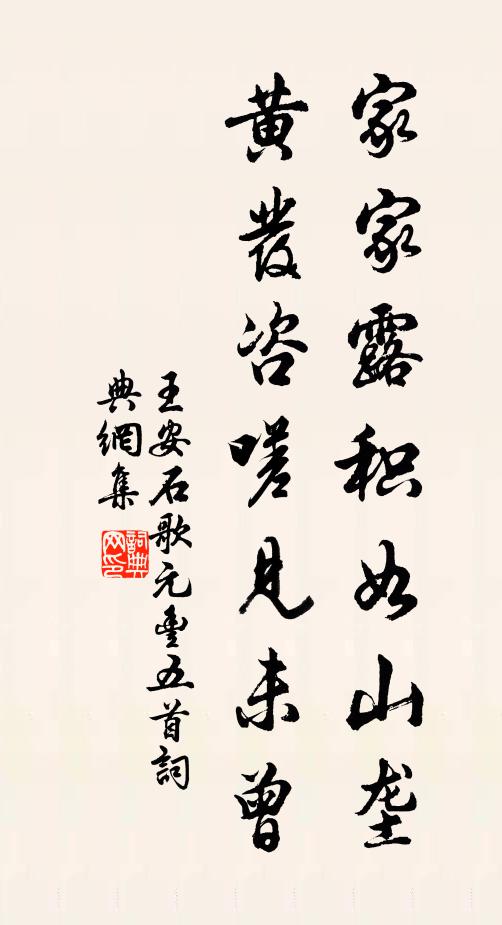 家家露积如山垄
黄发咨嗟见未曾
王安石歌元豐五首詞
典網集
詞典网印